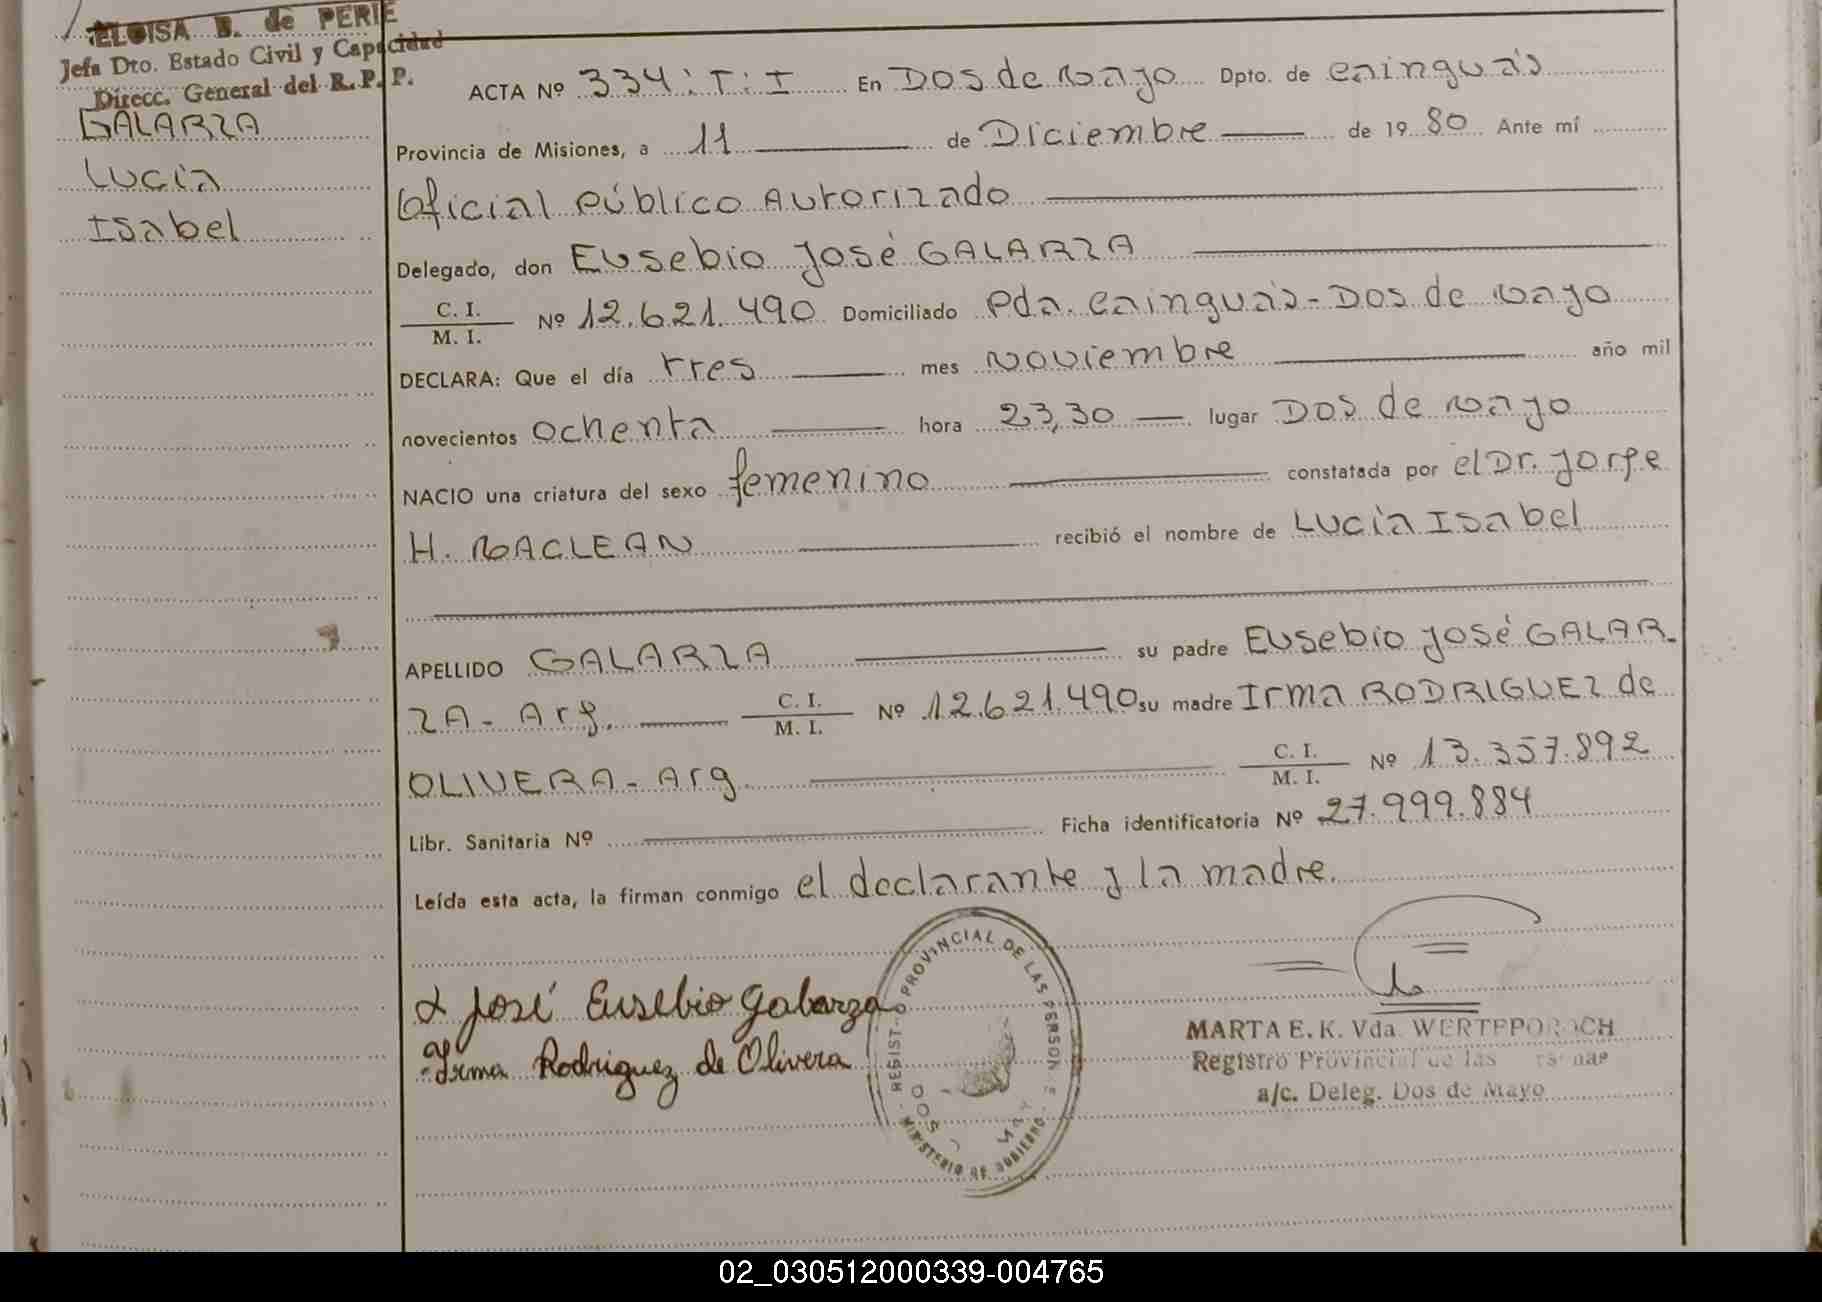 ELOISA B. de PERIE
Jefa Dto. Estado Civil y Capacidad
Direcc. General del R. P. P.
GALARZA
Lucía
Isabel
ACTA Nº 334: T: I En Dos de Mayo Dpto. de Cainguás
Provincia de Misiones, a 11 de Diciembre de 1980 Ante mí
Oficial Público Autorizado
Delegado, don Eusebio José GALARZA
C. I.
M. I. Nº 12.621.490 Domiciliado Pda. Cainguás - Dos de Mayo
DECLARA: Que el día tres mes Noviembre año mil
novecientos ochenta hora 23,30 lugar Dos de Mayo
NACIO una criatura del sexo femenino constatada por el Dr. Jorge
H. MACLEAN recibió el nombre de Lucía Isabel
APELLIDO GALARZA su padre Eusebio José GALAR-
ZA - Arg. C. I. M. I. Nº 12.621.490 su madre Irma RODRIGUEZ de
OLIVERA - Arg. C. I. M. I. Nº 13.357.892
Libr. Sanitaria Nº Ficha identificatoria Nº 27.999.884
Leída esta acta, la firman conmigo el declarante y la madre.
José Eusebio Galarza
Irma Rodriguez de Olivera
REGISTRO PROVINCIAL DE LAS PERSONAS
MINISTERIO DE GOBIERNO
DOS MAY
MARTA E. K. Vda. WERTEPOROCH
Registro Provincial de las Personas
a/c. Deleg. Dos de Mayo
02_030512000339-004765